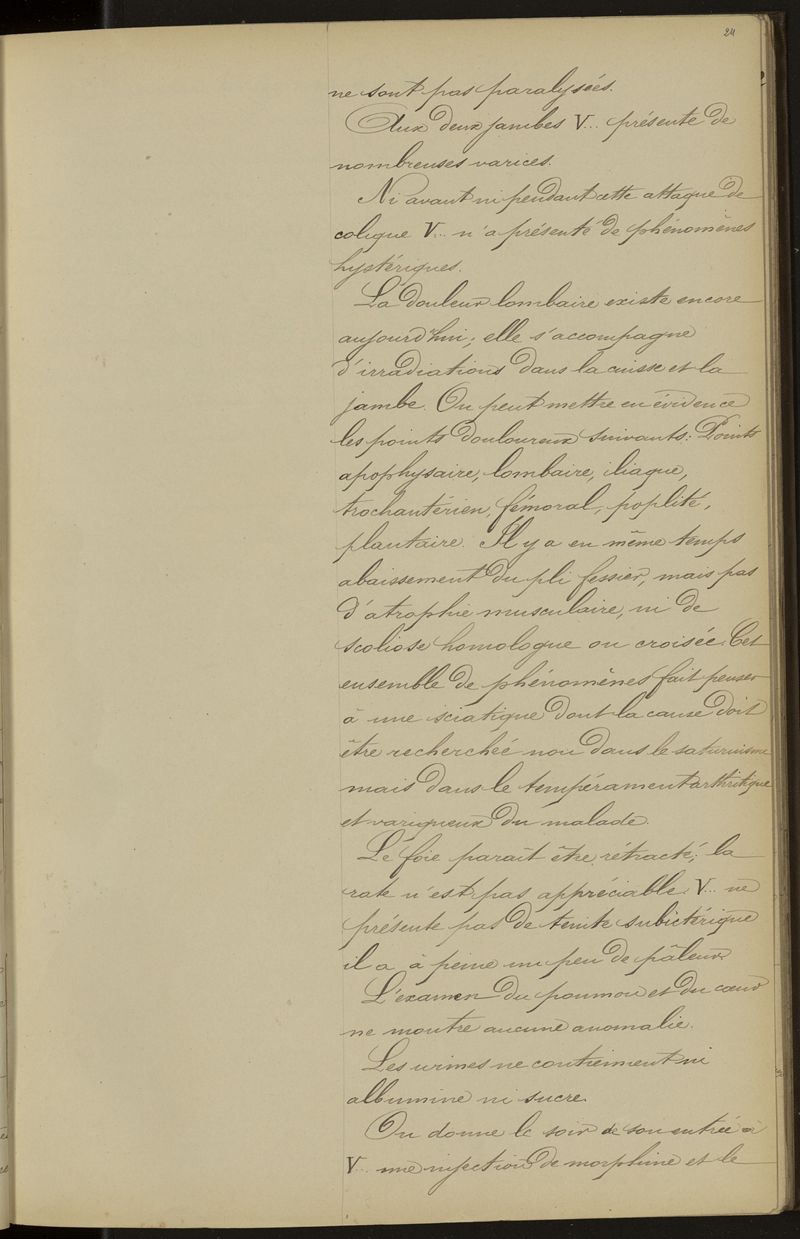 24
ne sont pas paralysées.
Aux deux jambes V... présente de
nombreuses varices.
Ni avant ni pendant cette attaque de
colique V... n'a présenté de phénomènes
hystériques.
La douleur lombaire existe encore
aujourd'hui; elle s'accompagne
d'irradiations dans la cuisse et la
jambe. On peut mettre en évidence
les points douloureux suivants: Points
apophysaire, lombaire, iliaque,
trochantérien, fémoral, poplité,
plantaire. Il y a en même temps
abaissement du pli fessier, mais pas
d'atrophie musculaire, ni de
scoliose homologue ou croisée. Cet
ensemble de phénomènes fait penser
à une sciatique dont la cause doit
être recherchée non dans le saturnisme
mais dans le tempérament arthritique
et variqueux du malade.
Le foie parait être rétracté; la
rate n'est pas appréciable. V... ne
présente pas de teinte subictérique
il a à peine un peu de pâleur.
L'examen du poumon et du coeur
ne montre aucune anomalie.
Les urines ne contiennent ni
albumine ni sucre.
On donne le soir de son entrée à
V... une injection de morphine et le